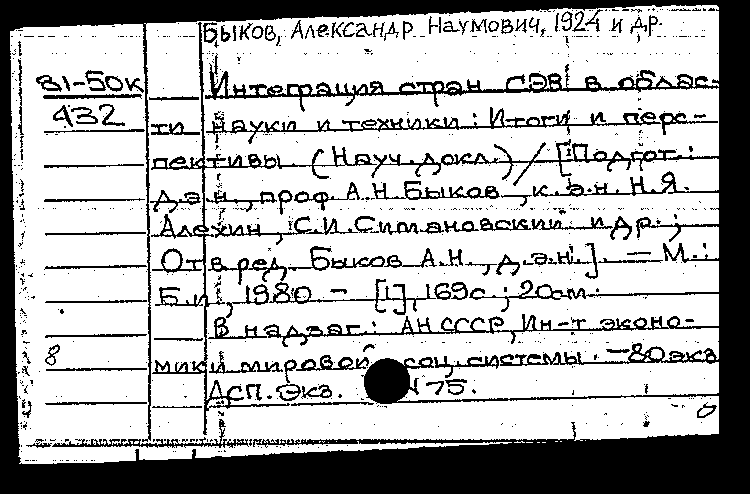 Быков, Александр Наумович, 1924 и др.
81-50к Интеграция стран СЭВ в облас-
432 ти науки и техники: Итоги и перс-
пективы (Науч. докл.) / [Подгот.:
д.э.н., проф. А.Н. Быков, к.э.н. Н.Я.
Алехин, С.И. Симановский и др.;
Отв ред. Быков А.Н., д.э.н.]. — М.:
Б.и, 1980 - [1], 169с.; 20см.
В надзаг.: АН СССР, Ин-т эконо-
8 мики мировой соц. системы. - 80экз
ДСП. Экз. 75.